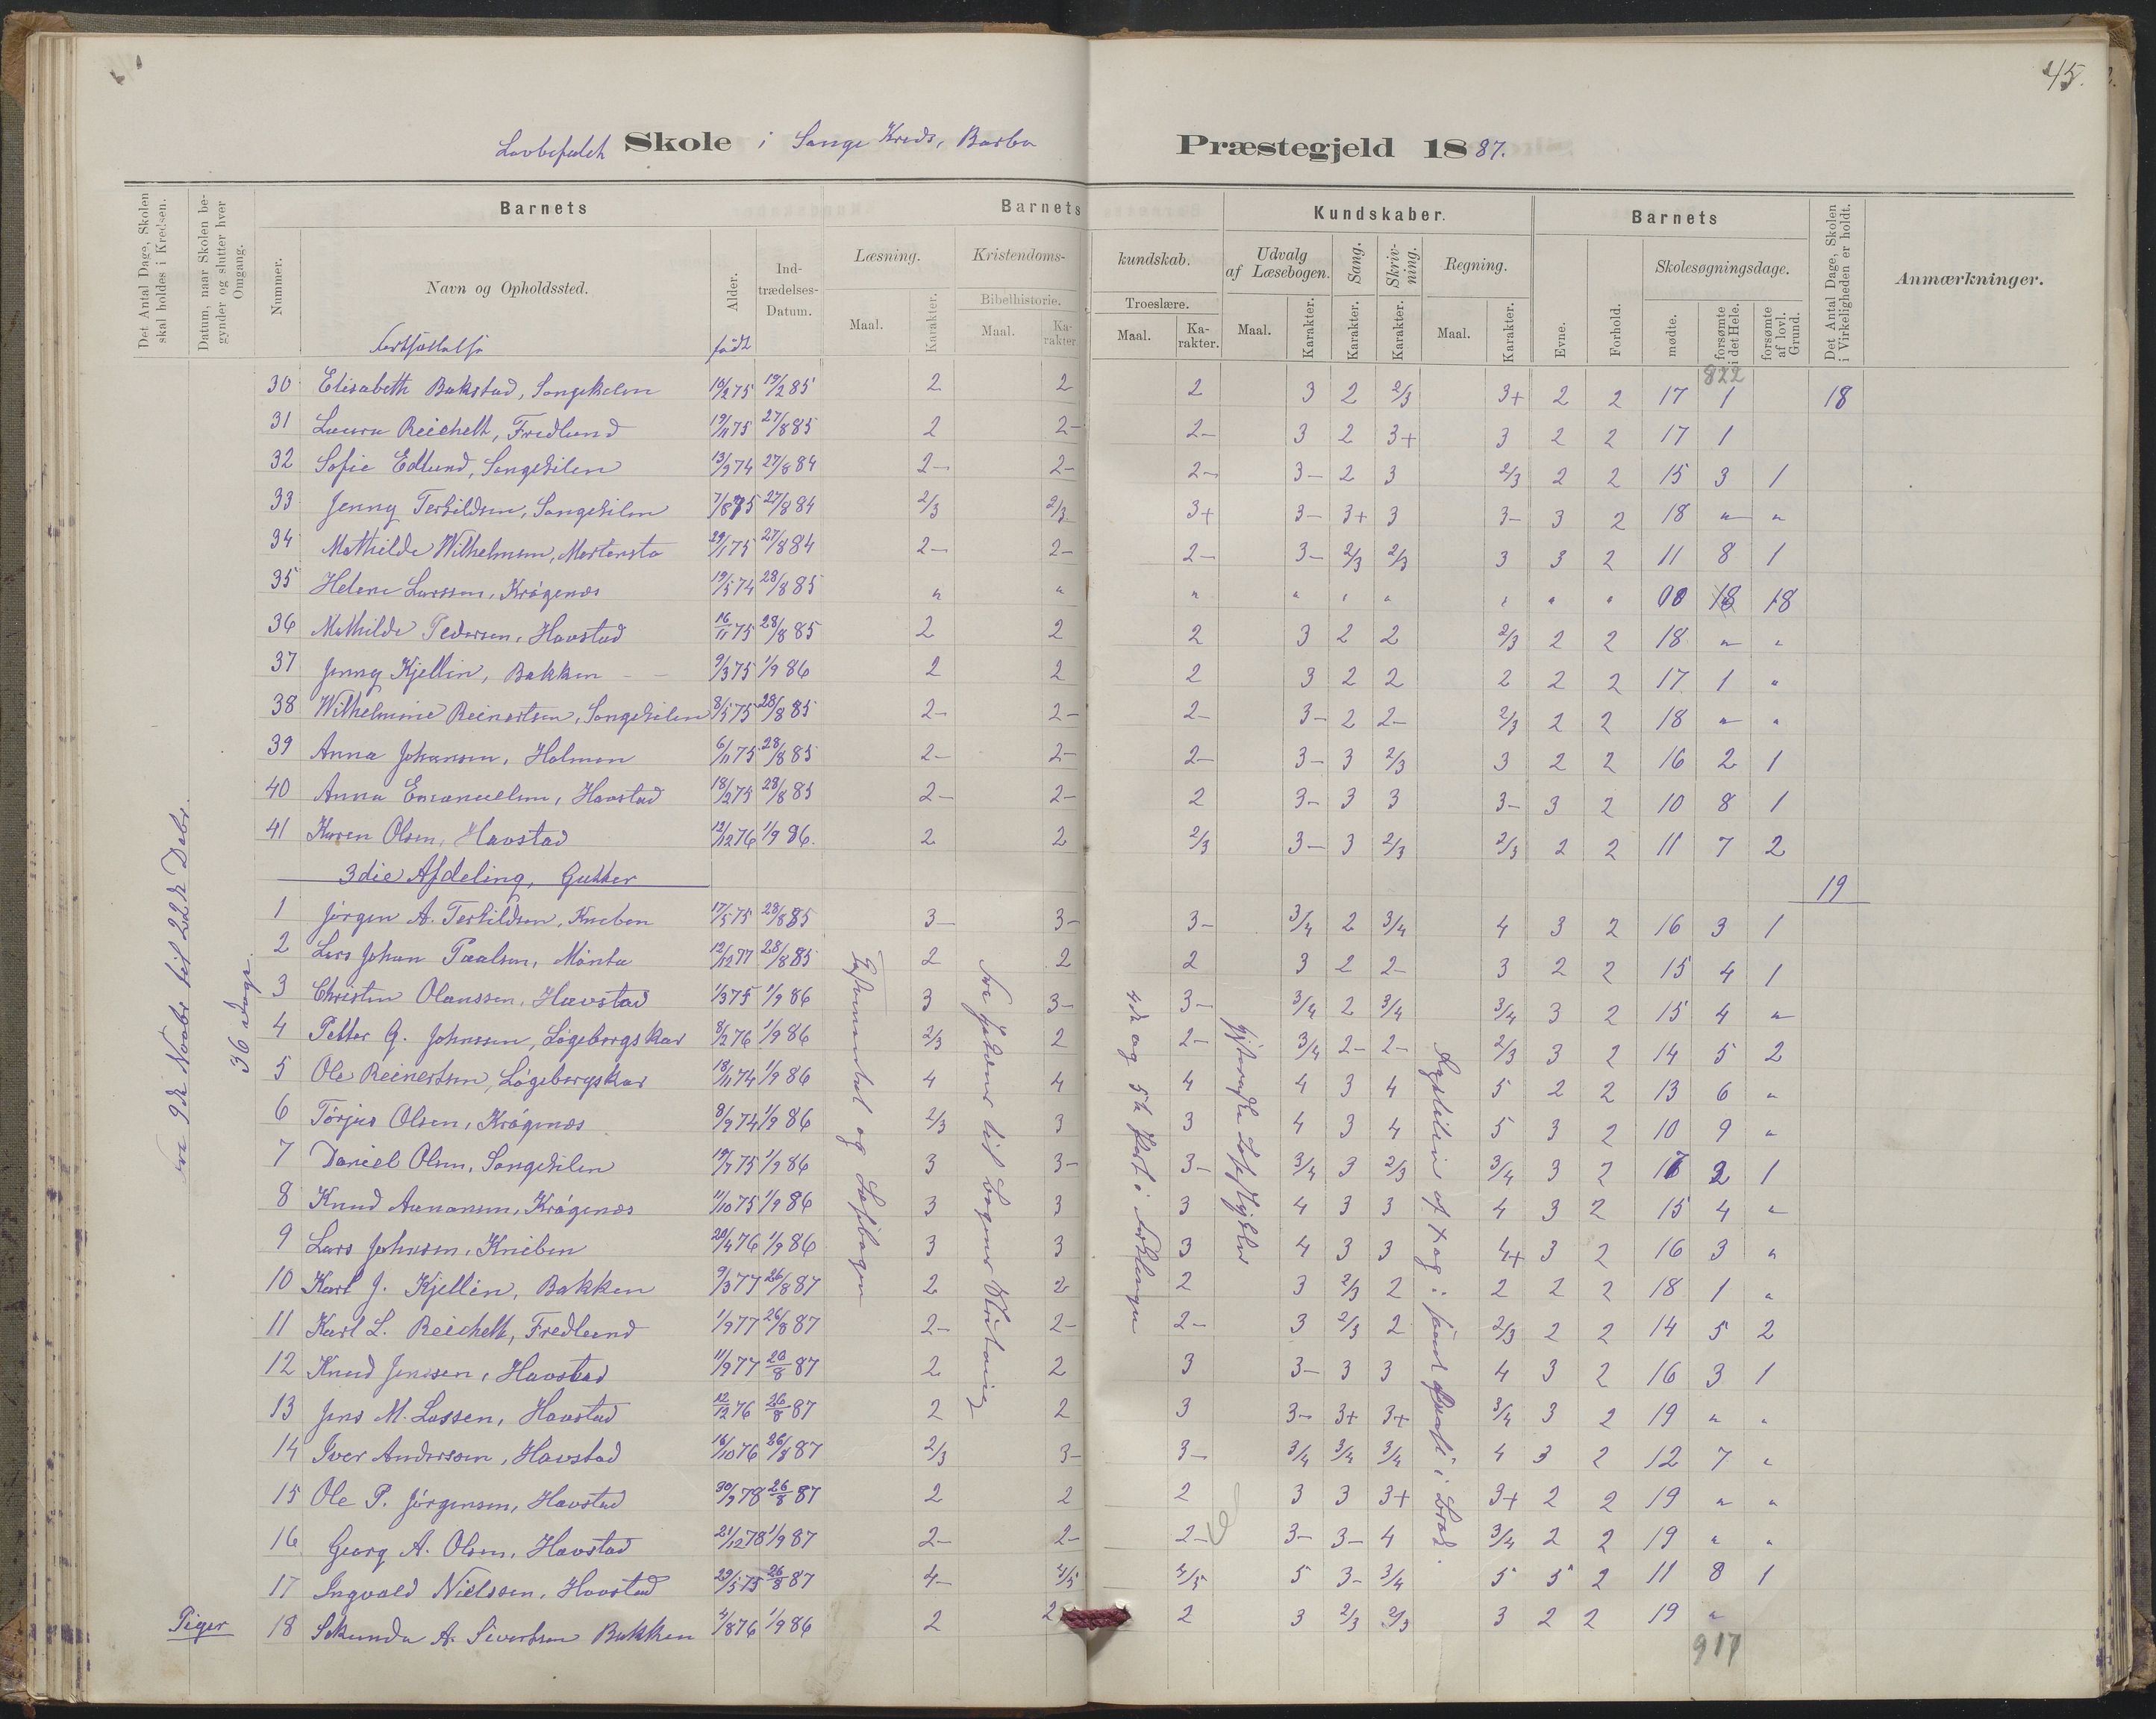 45.
Lovbefalet Skole i Songe Kreds, Barbo Præstegjeld 1887.
Det Antal Dage, Skolen skal holdes i Kredsen.
Datum, naar Skolen begynder og slutter hver Omgang.
Barnets
Barnets Kundskaber.
Barnets
Det Antal Dage, Skolen i Virkeligheden er holdt.
Anmærkninger.
Nummer. Navn og Opholdssted. Alder. Indtrædelses-Datum. Læsning. Kristendomskundskab. Udvalg af Læsebogen. Sang. Skrivning. Regning. Evne. Forhold. Skolesøgningsdage.
Bibelhistorie. Troeslære.
Maal. Karakter. Maal. Karakter. Maal. Karakter. Maal. Karakter. Karakter. Karakter. Maal. Karakter. mødte. forsømte i det Hele. forsømte af lovl. Grund.
Fortsættelse født
822
30 Elisabeth Bakstad, Songekilen 10/2 75 19/2 85 2 2 2 3 2 2/3 3+ 2 2 17 1 18
31 Laura Reichelt, Fredlund 19/11 75 27/8 85 2 2- 2- 3 2 3+ 3 2 2 17 1
32 Sofie Edlund, Songekilen 13/9 74 27/8 84 2- 2- 2- 3- 2 3 2/3 2 2 15 3 1
33 Jenny Terkildsen, Songekilen 7/8 75 27/8 84 2/3 2/3 3+ 3- 3+ 3 3- 3 2 18 " "
34 Mathilde Wilhelmsen, Mortensto 29/1 75 27/8 84 2- 2- 2- 3- 2/3 2/3 3 3 2 11 8 1
35 Helene Larssen, Krøgenæs 19/5 74 28/8 85 " " " " " " " " " 00 18 18
36 Mathilde Pedersen, Havstad 16/11 75 28/8 85 2 2 2 3 2 2 2/3 2 2 18 " "
37 Jenny Kjellin, Bakken 9/3 75 1/9 86 2 2 2 3 2 2 2 2 2 17 1 "
38 Wilhelmine Reinertsen, Songekilen 8/5 75 28/8 85 2- 2- 2- 3- 2 2- 2/3 2 2 18 " "
39 Anna Johansen, Holmen 6/11 75 28/8 85 2- 2- 2- 3- 3 2/3 3 2 2 16 2 1
40 Anna Emanuelsen, Havstad 18/2 75 28/8 85 2- 2- 2 3- 3 3 3- 3 2 10 8 1
41 Karen Olsen, Havstad 12/12 76 1/9 86. 2 2 2/3 3- 3 2/3 2/3 2 2 11 7 2
3die Afdeling, Gutter 19
1 Jørgen A. Terkildsen, Kneben 17/5 75 28/8 85 3- 3- 3- 3/4 2 3/4 4 3 2 16 3 1
2 Lars Johan Paalsen, Mønta 12/12 77 28/8 85 2 2 2 3 2 2- 3 2 2 15 4 1
3 Christen Olanssen, Havstad 1/3 75 1/9 86 3 3- 3- 3/4 2 3/4 3/4 3 2 15 4 "
4 Petter G. Johnssen, Løgebergskar 8/2 76 1/9 86 2/3 2 2- 3/4 2- 2- 2/3 3 2 14 5 2
5 Ole Reinertsen, Løgebergskar 18/11 74 1/9 86 4 4 4 4 3 4 5 2 2 13 6 "
6 Tørjus Olsen, Krøgenæs 8/9 74 1/9 86 2/3 3 3 4 3 4 5 3 2 10 9 "
7 Daniel Olsen, Songekilen 19/7 75 1/9 86 3 3- 3- 3/4 3 2/3 3/4 3 2 17 2 1
8 Knud Aanonsen, Krøgenæs 11/10 75 1/9 86 3 3 3 4 3 3 4 3 2 15 4 "
9 Lars Johnsen, Kneben 20/4 76 1/9 86 3 3 3 4 3 3 4+ 3 2 16 3 "
10 Karl J. Kjellin, Bakken 9/3 77 26/8 87 2 2 2 3 2/3 2 2 2 2 18 1 "
11 Karl L. Reichelt, Fredlund 1/9 77 26/8 87 2- 2- 2- 3 2/3 2 2/3 2 2 14 5 2
12 Knud Jenssen, Havstad 11/9 77 26/8 87 2 2 3 3- 3 3 4 3 2 16 3 1
13 Jens M. Lassen, Havstad 12/12 76 26/8 87 2 2 3 3- 3+ 3+ 3/4 3 2 19 " "
14 Iver Anderssen, Havstad 16/10 76 26/8 87 2/3 3- 3- 3/4 3/4 3/4 4 3 2 12 7 "
15 Ole P. Jørgensen, Havstad 30/9 78 26/8 87 2 2 2 3 3 3+ 3+ 2 2 19 " "
16 Georg A. Olsen, Havstad 21/12 78 1/9 87 2- 2- 2- 3- 3- 4 3/4 2 2 19 " "
17 Ingvald Nielssen, Havstad 29/5 75 26/8 87 4- 4/5 4/5 5 3- 3/4 5 5 2 11 8 1
Piger 18 Sekunda A. Sivertsen Bakken 4/8 76 1/9 86 2 2 2 3 2/3 2/3 3 2 2 19 "
917
Fra 9de Novbr til 22de Decbr.
36 Dage.
og Læsebogen
4de og 5te Part i Forklaringen